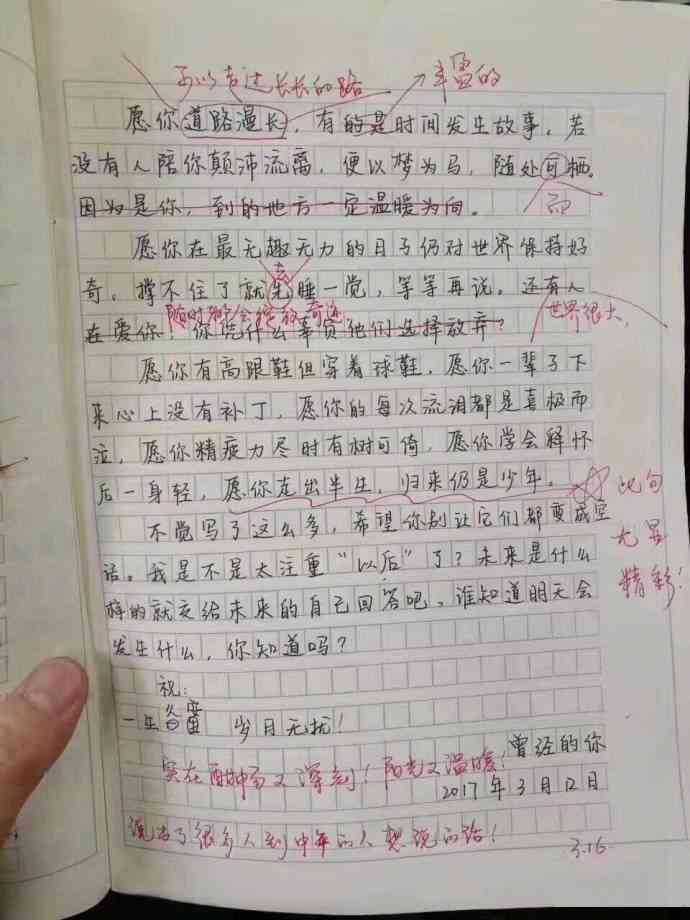 可以走过长长的路
丰富的
愿你道路漫长，有的是时间发生故事。若
没有人陪你颠沛流离，便以梦为马，随处可栖。
因为是你，到的地方一定温暖为向。
而
愿你在最无趣无力的日子仍对世界保持好
去
奇。撑不住了就先睡一觉，等等再说。还有人
随时都会绽放奇迹
世界很大，
在爱你，你凭什么辜负他们选择放弃？
愿你有高跟鞋但穿着球鞋，愿你一辈子下
来心上没有补丁，愿你的每次流泪都是喜极而
泣，愿你精疲力尽时有树可倚，愿你学会释怀
后一身轻，愿你走出半生，归来仍是少年。
此句
尤显
精彩！
不觉写了这么多，希望你别让它们都变成空
话。我是不是太注重“以后”了？未来是什么
样的就交给未来的自己回答吧，谁知道明天会
发生什么，你知道吗？
祝：
一生 岁月无扰！
实在 又深刻！阳光又温暖！
曾经的你
2017年3月12日
说出了很多人到中年的人想说的话！
3.16